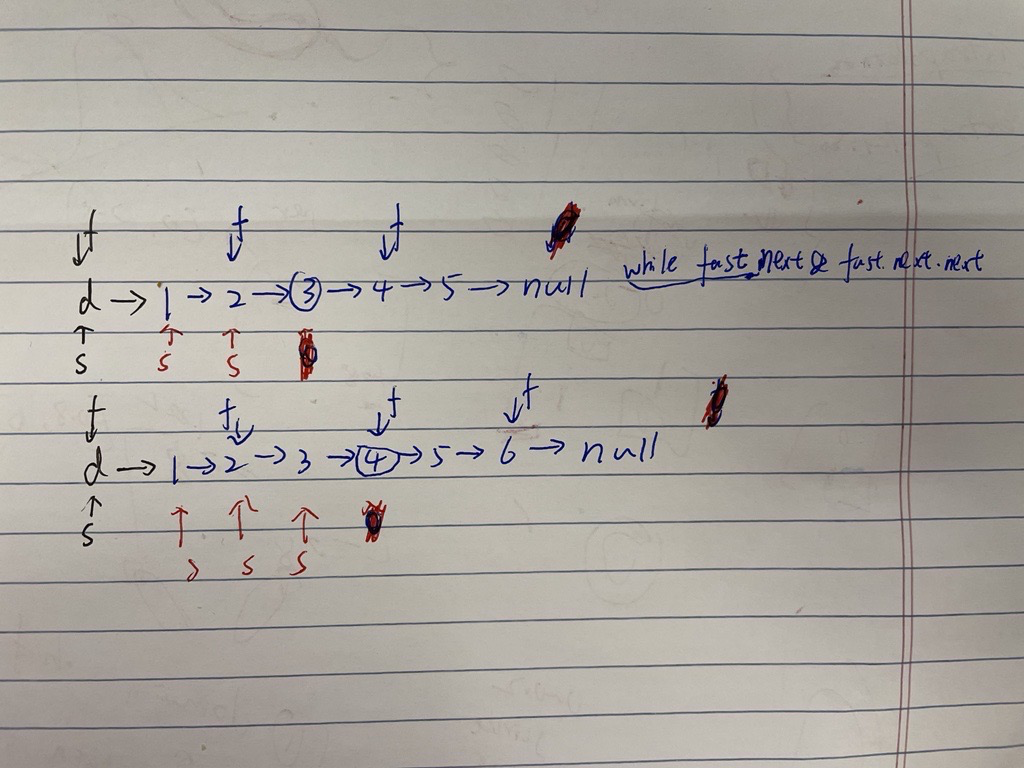 f f f
d → 1 → 2 → 3 → 4 → 5 → null while fast.next & fast.next.next
↑ ↑ ↑
s s s
f f f f
d → 1 → 2 → 3 → 4 → 5 → 6 → null
↑ ↑ ↑ ↑
s s s s